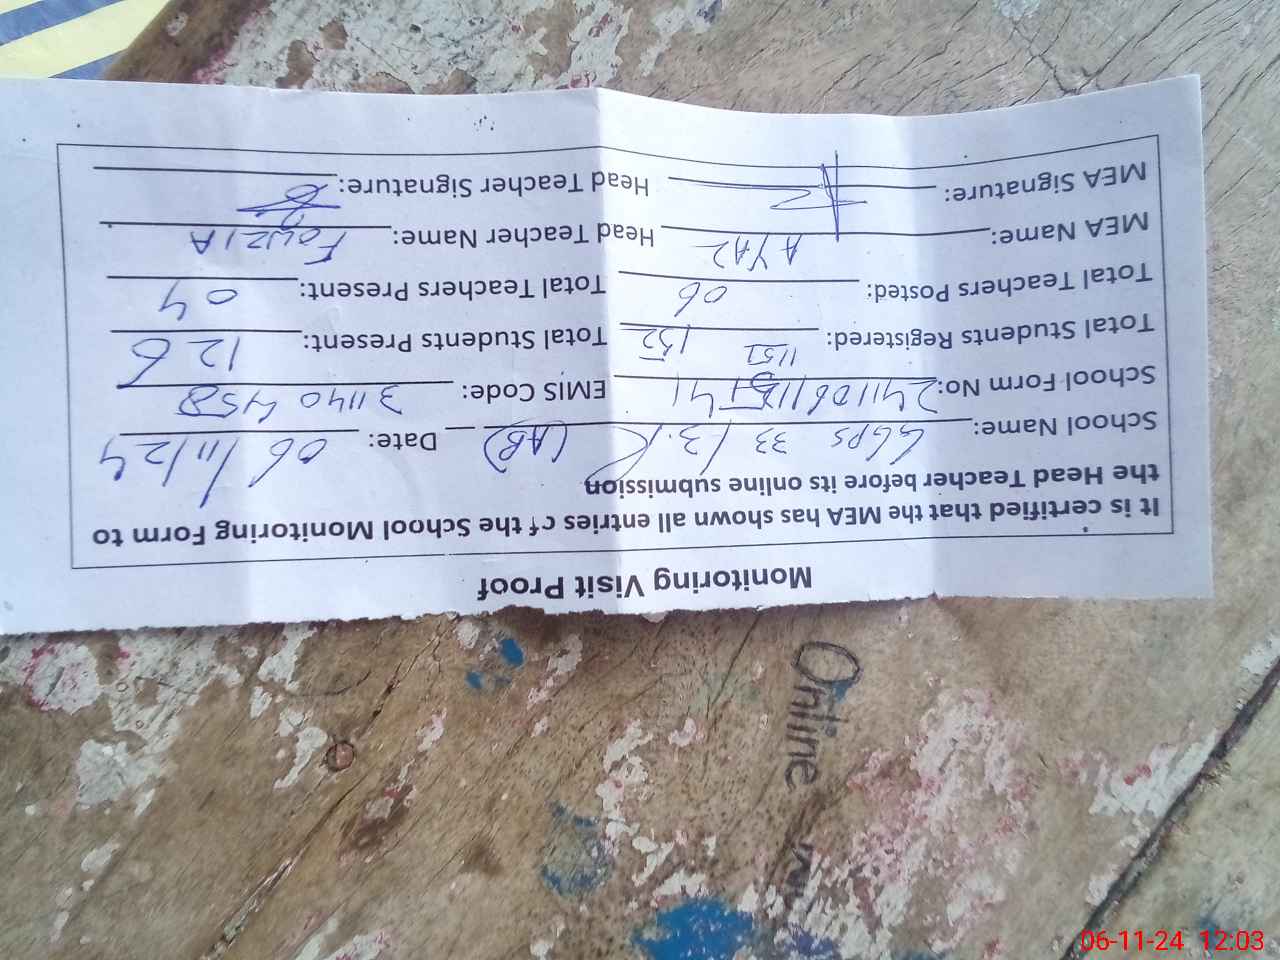 Monitoring Visit Proof
It is certified that the MEA has shown all entries of the School Monitoring Form to
the Head Teacher before its online submission
School Name: GGPS 33 / 3.R (AB) Date: 06/11/24
School Form No: 241106 41 EMIS Code: 31140458
1151
Total Students Registered: 152 Total Students Present: 126
Total Teachers Posted: 06 Total Teachers Present: 04
MEA Name: AYAZ Head Teacher Name: FOWZIA
MEA Signature: Head Teacher Signature:
Online
06-11-24 12:03